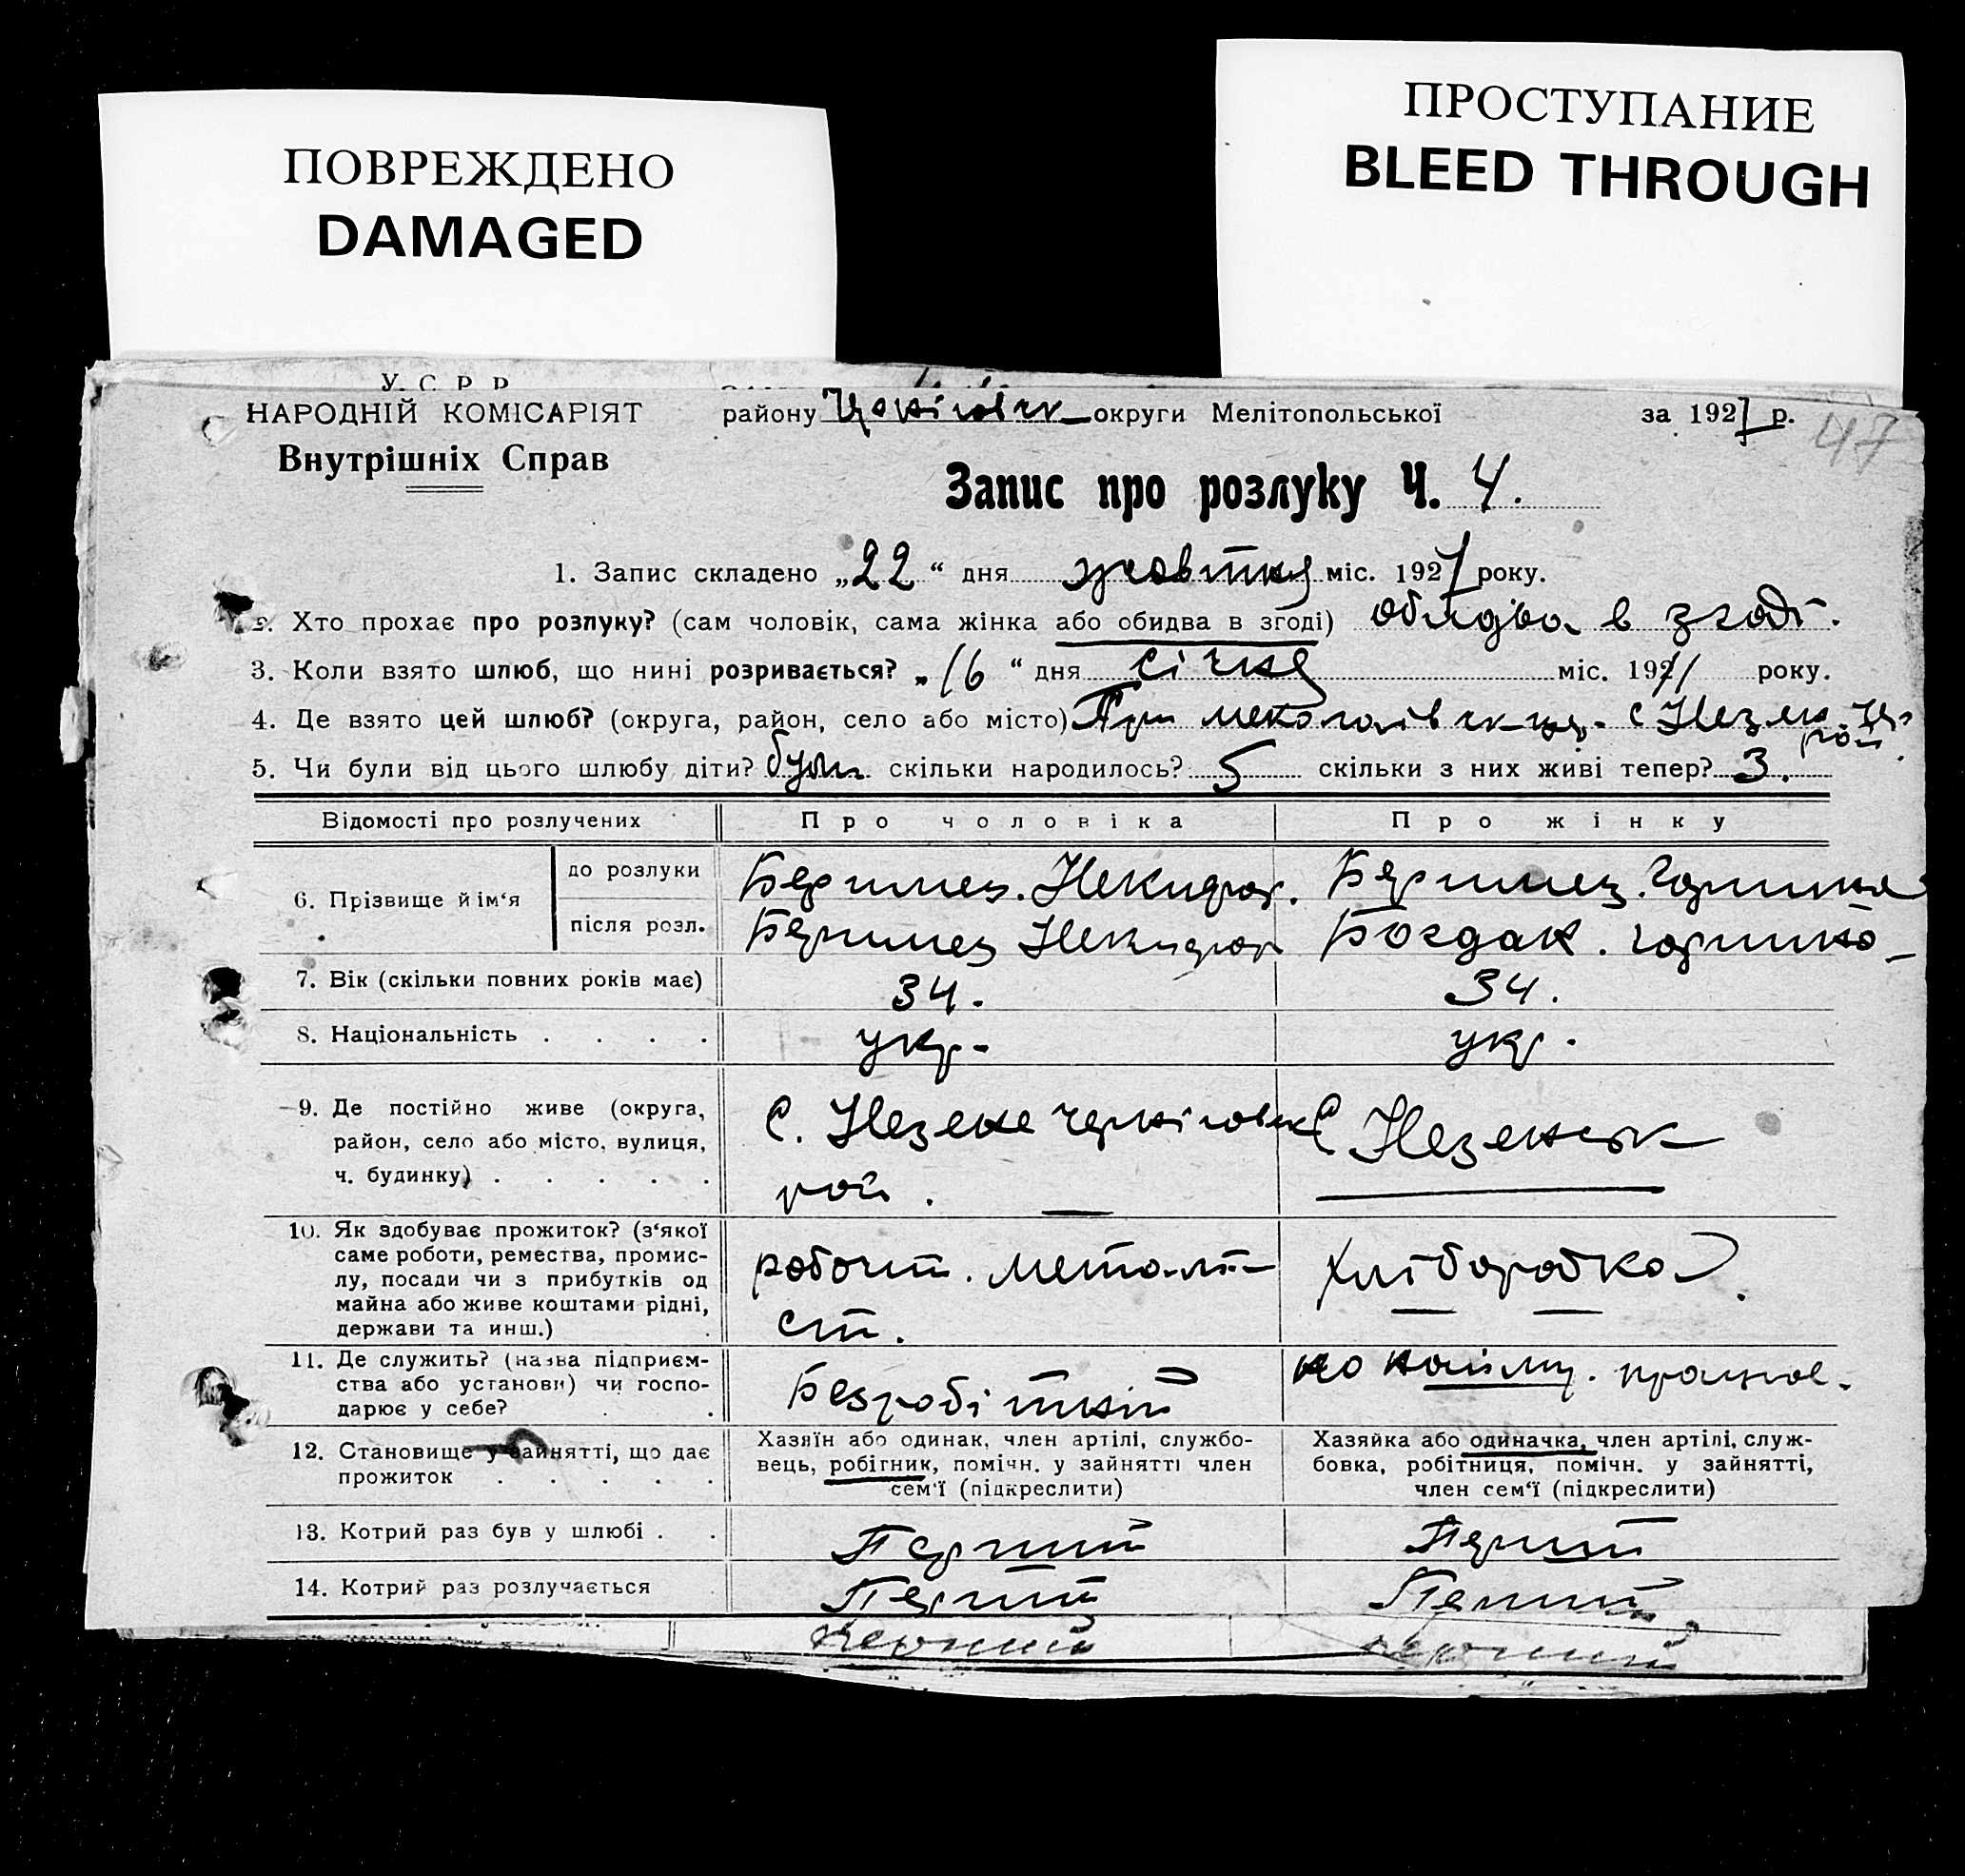 ПОВРЕЖДЕНО
DAMAGED
ПРОСТУПАНИЕ
BLEED THROUGH
У. С. Р. Р.
НАРОДНІЙ КОМІСАРІЯТ
Внутрішніх Справ
району округи Мелітопольської за 1927 р.
47
Запис про розлуку Ч. 4.
1. Запис складено „22“ дня жовтня міс. 1927 року.
2. Хто прохає про розлуку? (сам чоловік, сама жінка або обидва в згоді) обидва в згоді.
3. Коли взято шлюб, що нині розривається? „16“ дня січня міс. 1911 року.
4. Де взято цей шлюб? (округа, район, село або місто) При
рой.
5. Чи були від цього шлюбу діти? були скільки народилось? 5 скільки з них живі тепер? 3.
Відомості про розлучених Про чоловіка Про жінку
6. Прізвище й ім‘я
до розлуки
після розл. Богдан.
7. Вік (скільки повних років має) 34. 34.
8. Національність . . . . укр. укр.
9. Де постійно живе (округа, район, село або місто, вулиця, ч. будинку) . . . . .
С.
рой.
10. Як здобуває прожиток? (з‘якої
саме роботи, ремества, промис-
лу, посади чи з прибутків од
майна або живе коштами рідні,
держави та инш.)
робочит. металі-
ст.
хліборобка.
11. Де служить? (назва підприєм-
ства або установи) чи госпо-
дарює у себе?
Безробітний
по найму. працює.
12. Становище у зайнятті, що дає
прожиток . . . . .
Хазяїн або одинак, член артілі, службо-
вець, робітник, помічн. у зайнятті член
сем‘ї (підкреслити)
Хазяйка або одиначка, член артілі, служ-
бовка, робітниця, помічн. у зайнятті,
член сем‘ї (підкреслити)
13. Котрий раз був у шлюбі . . Перший Перший
14. Котрий раз розлучається Перший Перший
Перший Перший